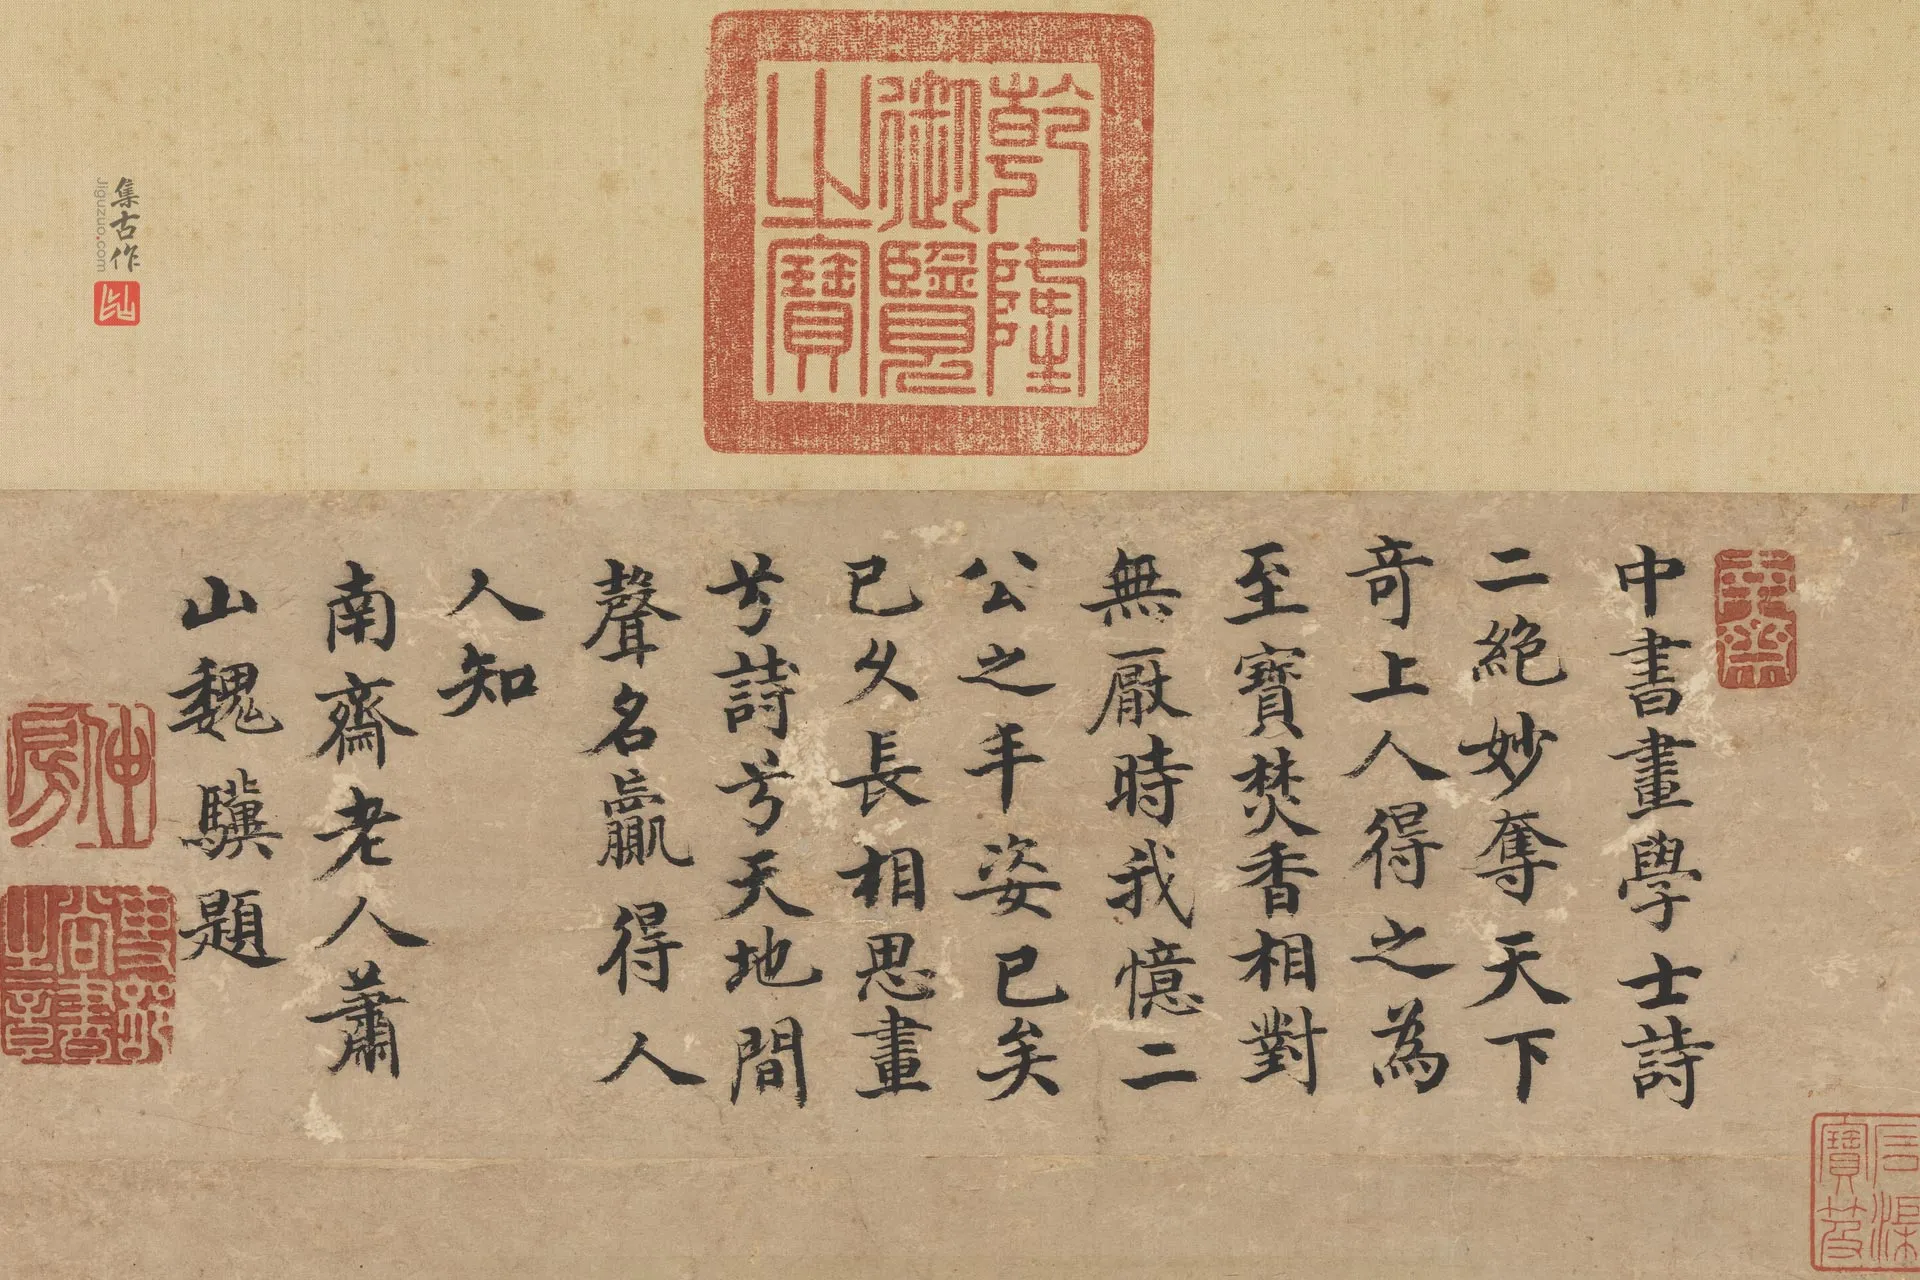 乾隆
御覽
之寶
中書畫學士詩
二絕妙奪天下
奇上人得之為
至寶焚香相對
無厭時我憶二
公之丰姿已矣
已久長相思畫
兮詩兮天地間
聲名贏得人
人知
南齋老人蕭
山魏驥題
仲房
尚書
之章
石渠
寶笈
集古作
Jiguzuo.com